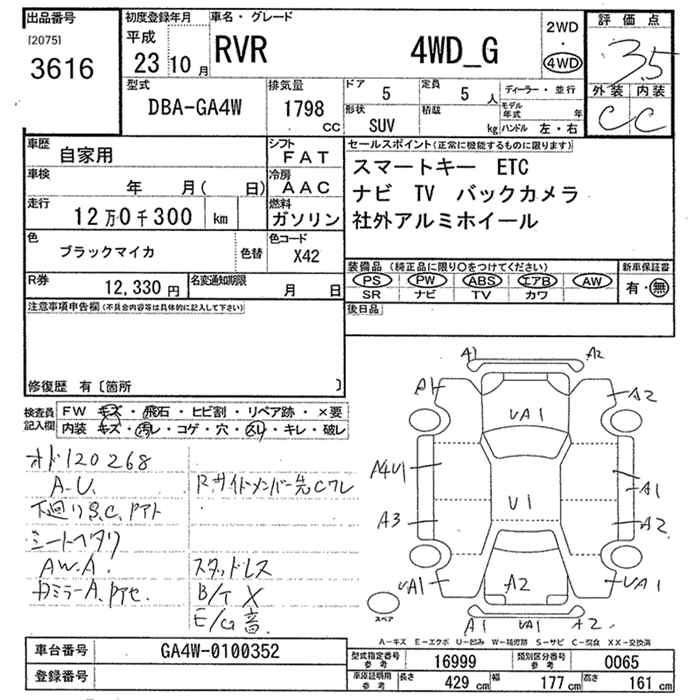 出品番号
[2075]
3616
初度登録年月
平成
23 10 月
車名・グレード
RVR 4WD_G
2WD
・
4WD
評価点
3.5
外装 内装
C C
型式
DBA-GA4W
排気量
1798
CC
ドア
5
定員
5 人
形状
SUV
積載
kg
ディーラー・並行
モデル
年式 年
ハンドル 左・右
車歴
自家用
車検
年 月( 日)
走行
12万0千300 km
シフト
FAT
冷房
AAC
燃料
ガソリン
色
ブラックマイカ
色替
色コード
X42
R券
12,330 円
名変通知期限
月 日
セールスポイント(正常に機能するものに限ります)
スマートキー ETC
ナビ TV バックカメラ
社外アルミホイール
装備品 (純正品に限り○をつけてください)
PS PW ABS エアB AW
SR ナビ TV カワ
新車保証書
有・無
後日品
注意事項申告欄(不具合内容等は具体的に記入して下さい)
修復歴 有〔箇所 〕
検査員
記入欄
FW キズ・飛石・ヒビ割・リペア跡・×要
内装 キズ・汚レ・コゲ・穴・スレ・キレ・破レ
オド120268
A-U.
下廻りS,C,Pアト
シートヘタリ
AW.A.
R.サイドメンバー先Cワレ
スタッドレス
B/T X
E/G 音
A1 A2
A1 A2
UA1
A4U1 A1
U1
A3 A2
UA1 A2 UA1
A1 UA1 A2
スペア
A-キズ E-エクボ U-凹み W-補修跡 S-サビ C-腐食 XX-交換済
車台番号
GA4W-0100352
登録番号
型式指定番号
参考
16999
類別区分番号
参考
0065
車庫証明用
参考
長さ 429 cm 幅 177 cm 高さ 161 cm